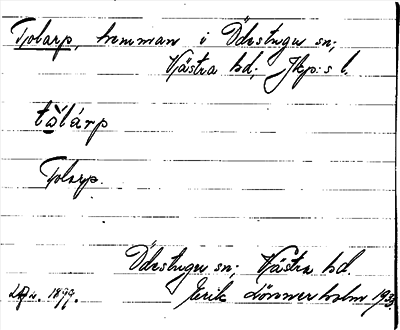 Tolarp, hemman i Ödestugu sn;
Västra hd; Jkp:s l.
tålárp
Tolarp.
Ödestugu sn; Västra hd.
1899. Erik Lönnerholm 1933.